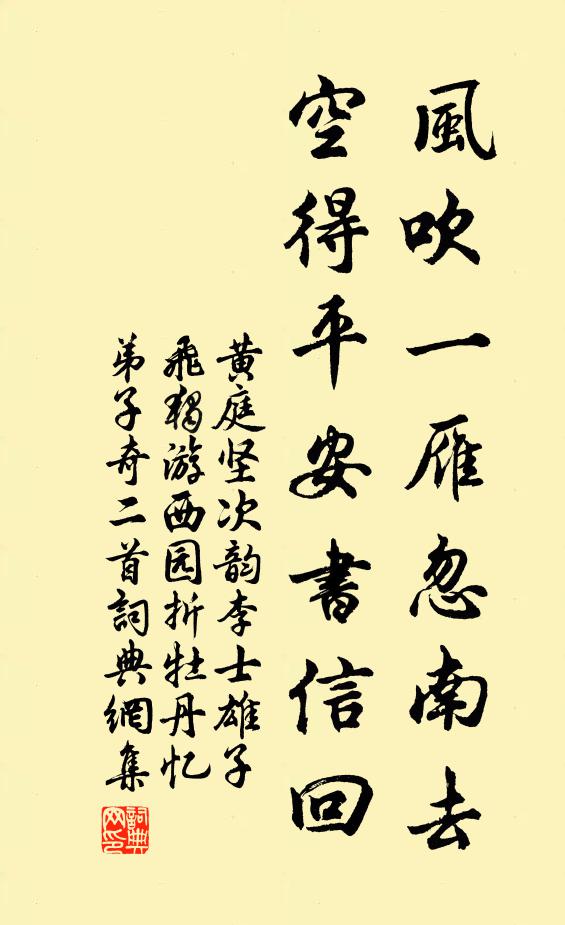 風吹一雁忽南去
空得平安書信回
黄庭坚次韵李士雄子
飛獨游西园折牡丹忆
弟子奇二首詞典網集
詞典網印